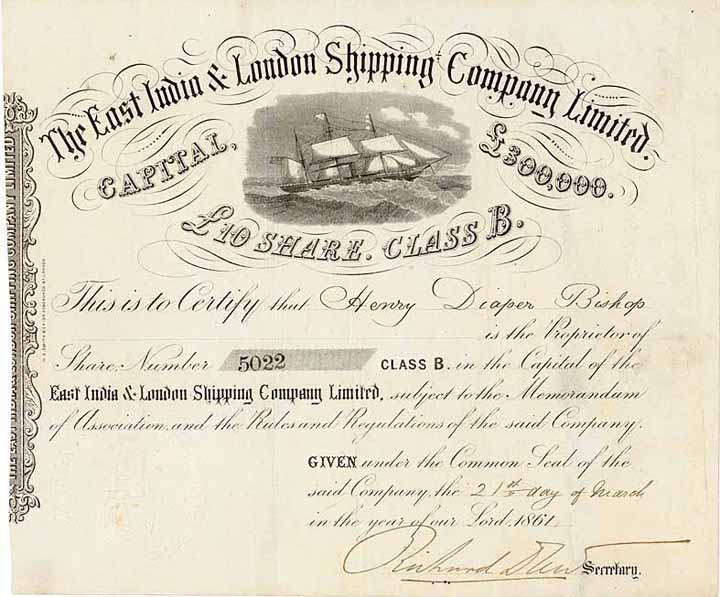 The East India & London Shipping Company Limited.
CAPITAL, £300,000.
£10 SHARE. CLASS B.
This is to Certify that Henry Diaper Bishop
is the Proprietor of
Share, Number 5022 CLASS B. in the Capital of the
East India & London Shipping Company Limited, subject to the Memorandum
of Association, and the Rules and Regulations of the said Company.
GIVEN under the Common Seal of the
said Company, the 21st day of March
in the year of our Lord, 1861
Richard Secretary.